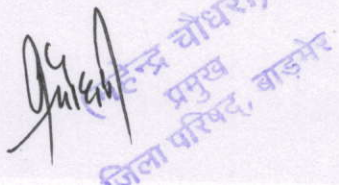 (महेन्द्र चौधरी)
प्रमुख
जिला परिषद्, बाड़मेर